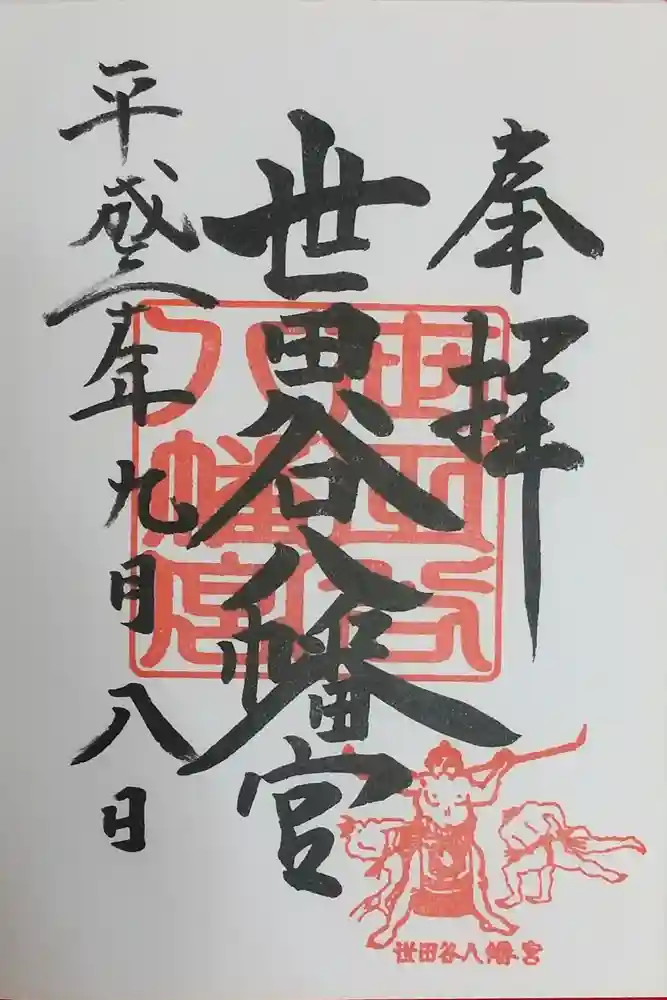 奉拝
世田谷八幡宮
平成三十年九月八日
世田谷
八幡宮
世田谷八幡宮